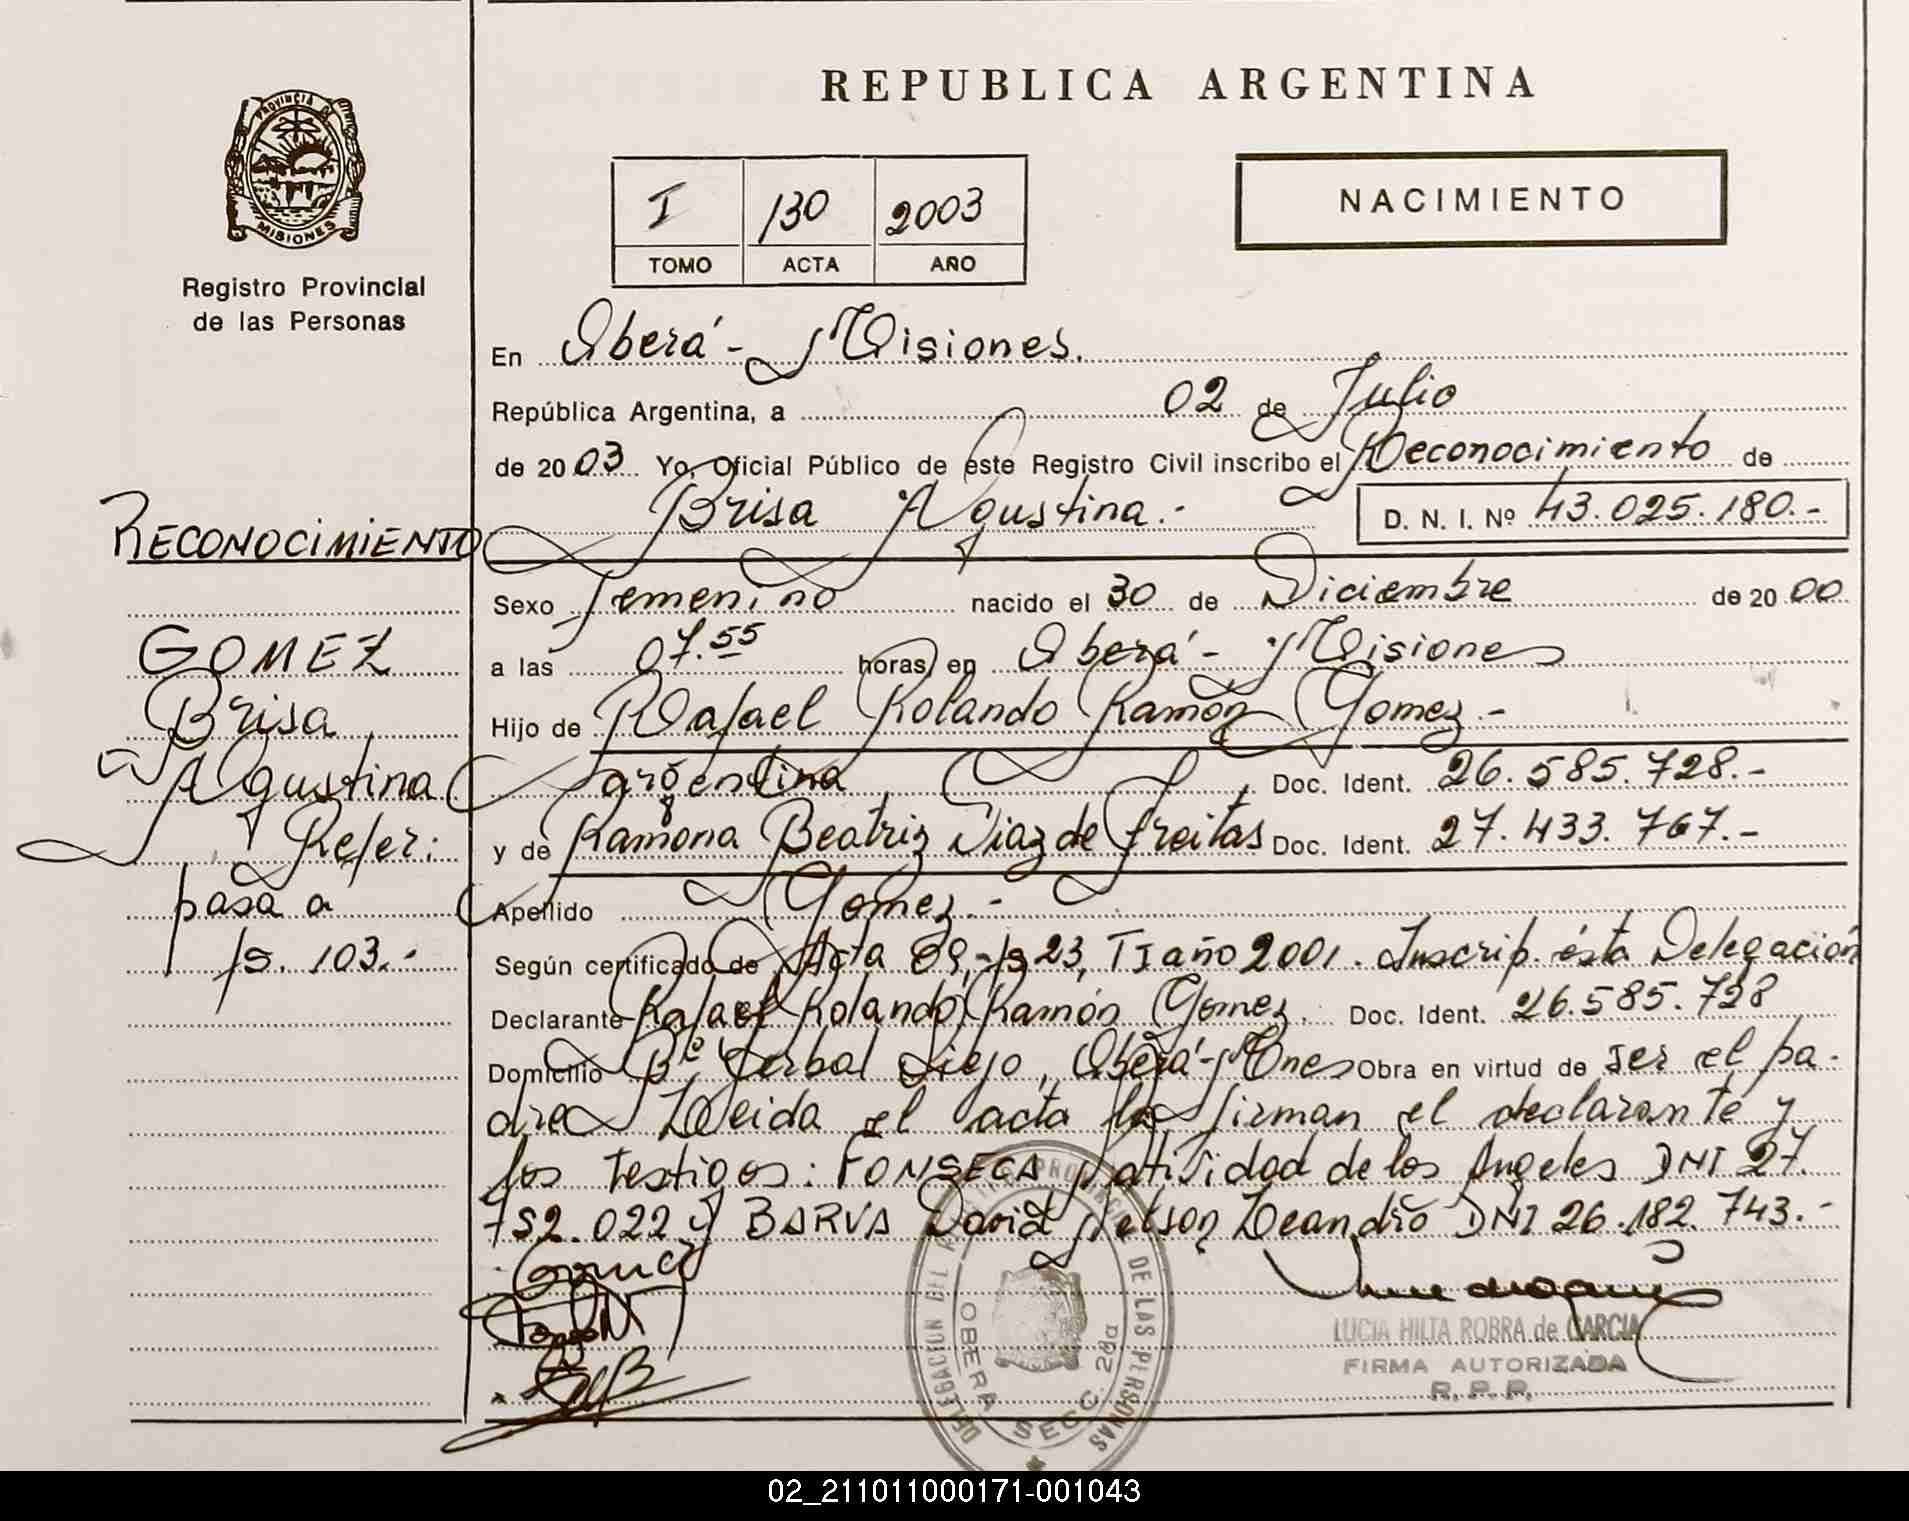 REPUBLICA ARGENTINA
PROVINCIA DE
MISIONES
Registro Provincial
de las Personas
I 130 2003
TOMO ACTA AÑO
NACIMIENTO
En Oberá - Misiones.
República Argentina, a 02 de Julio
de 20 03 Yo, Oficial Público de este Registro Civil inscribo el Reconocimiento de
Brisa Agustina.-
D. N. I. Nº 43.025.180.-
RECONOCIMIENTO
GOMEZ
Brisa
Agustina
Refer:
pasa a
fs. 103.-
Sexo femenino nacido el 30 de Diciembre de 20 00
a las 07.55 horas, en Oberá - Misiones
Hijo de Rafael Rolando Ramón Gomez.-
argentina Doc. Ident. 26.585.728.-
y de Ramona Beatriz Diaz de Freitas Doc. Ident. 27.433.767.-
Apellido Gomez.-
Según certificado de Acta 89, fs 23, TI año 2001. Inscrip. ésta Delegación
Declarante Rafael Rolando Ramón Gomez. Doc. Ident. 26.585.728
Domicilio Bº Yerbal Viejo, Oberá-Mnes Obra en virtud de ser el pa-
dre Leida el acta la firman el declarante y
los testigos: FONSECA Natividad de los Angeles DNI 27.
752.022 y BARVA David Nelson Leandro DNI 26.182.743.-
DELEGACION DEL REGISTRO PROVINCIAL DE LAS PERSONAS
OBERA SECC. 28a
LUCIA HILTA ROBRA de GARCIA
FIRMA AUTORIZADA
R.P.P.
02_211011000171-001043